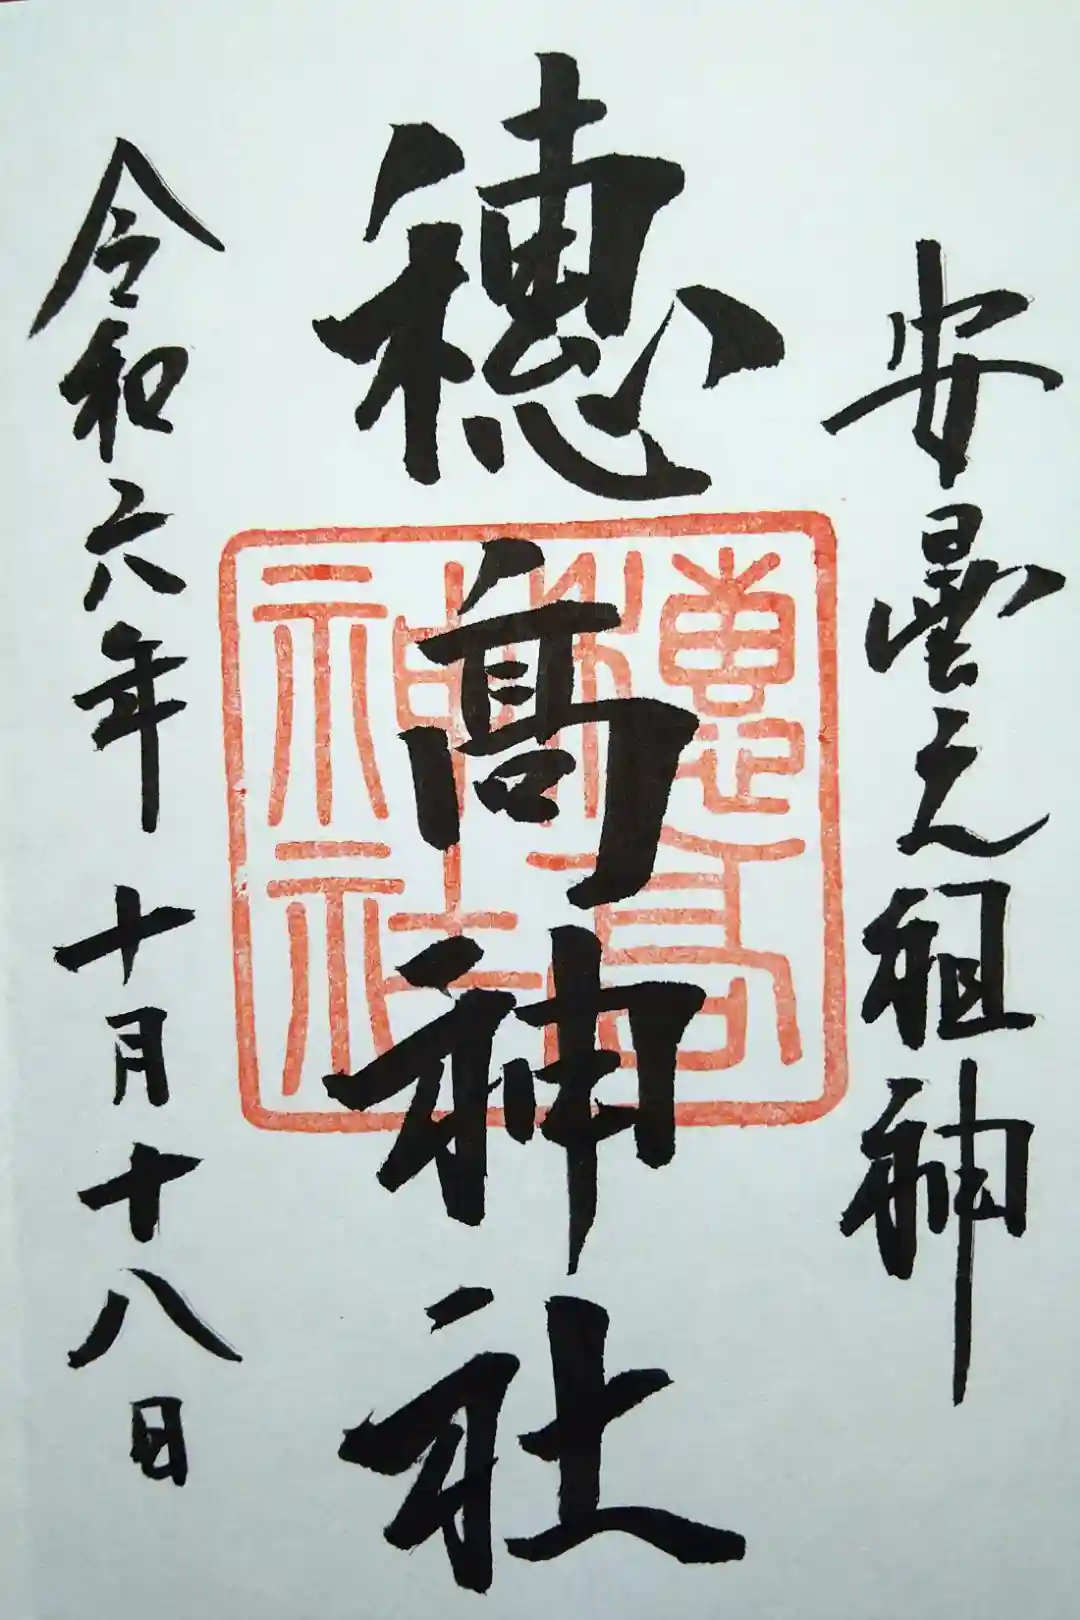 安曇元祖神
穂髙神社
穂高神社
令和六年十月十八日